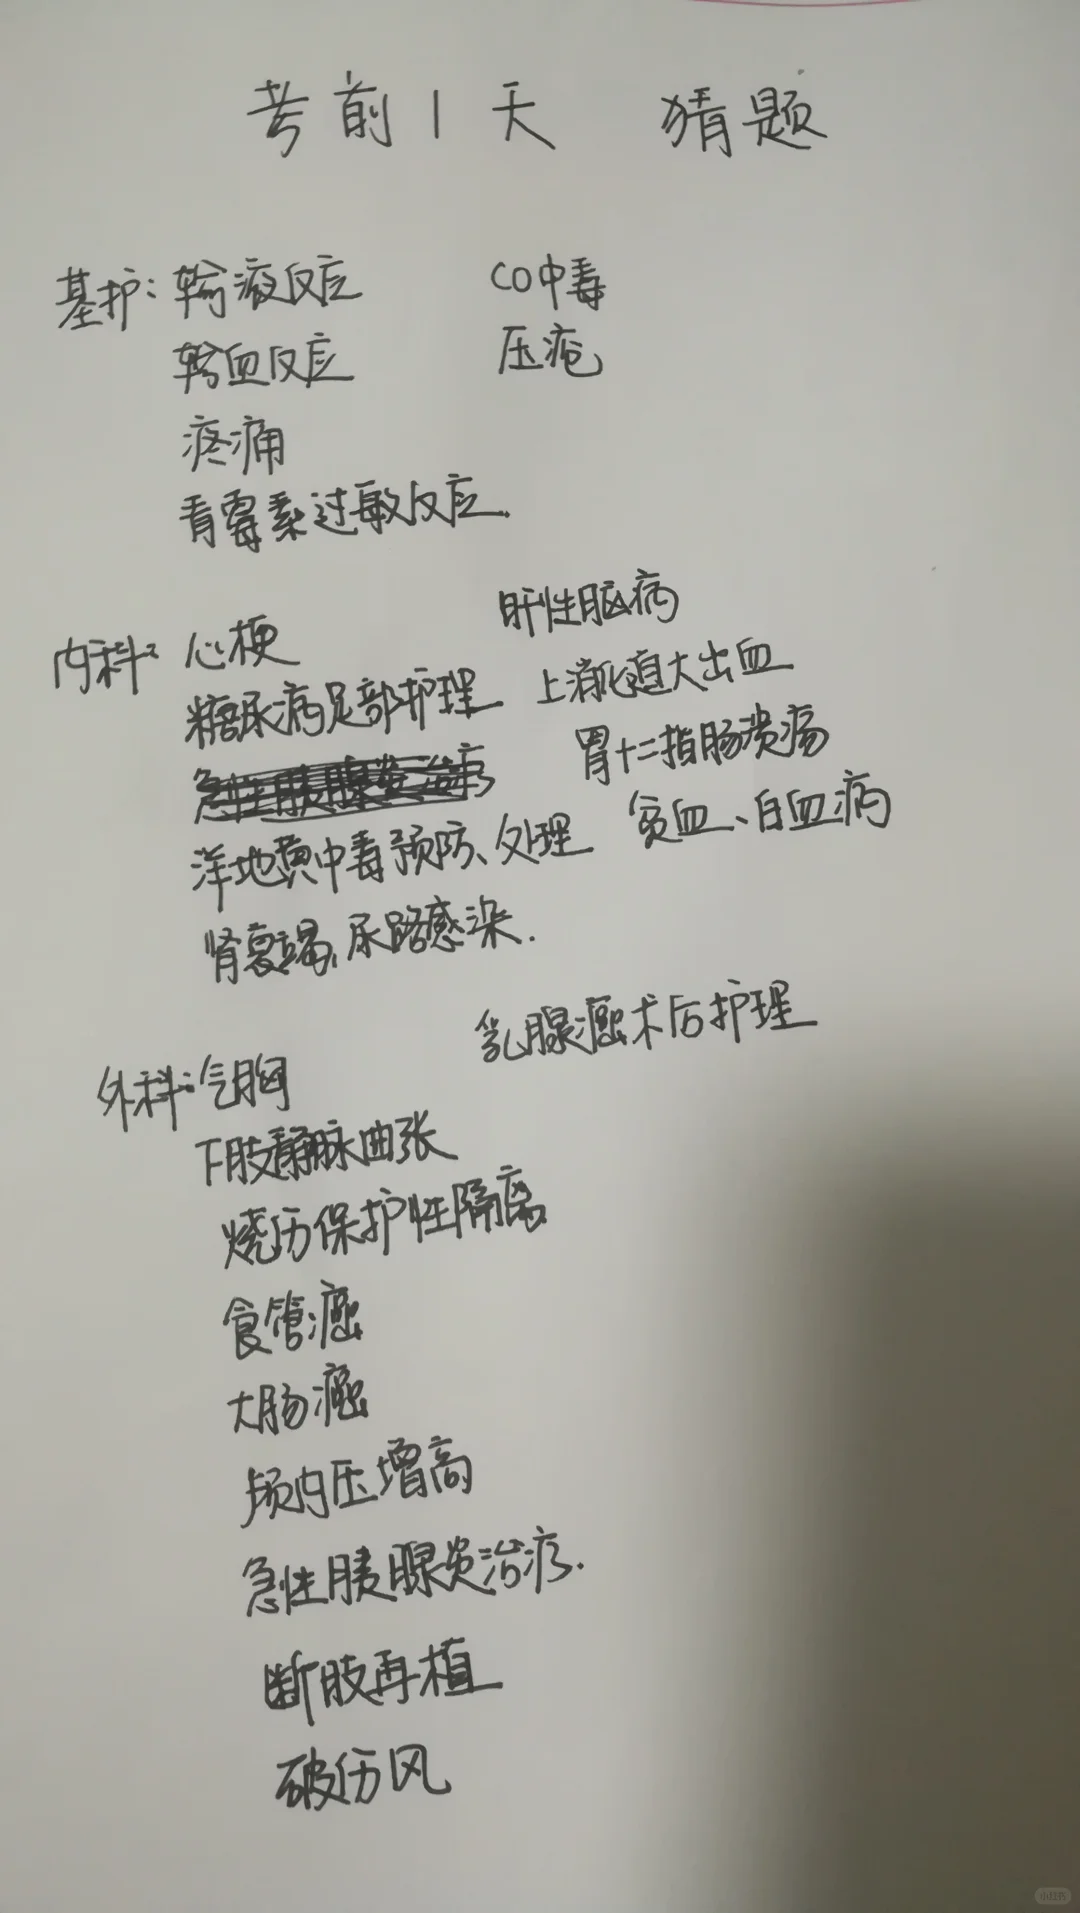 考前1天 猜题
基护：输液反应 CO中毒
输血反应 压疮
疼痛
青霉素过敏反应.
内科：心梗 肝性脑病
糖尿病足部护理 上消化道大出血
急性胰腺炎治疗 胃十二指肠溃疡
洋地黄中毒预防、处理 贫血、白血病
肾衰竭、尿路感染.
乳腺癌术后护理
外科：气胸
下肢静脉曲张
烧伤保护性隔离
食管癌
大肠癌
颅内压增高
急性胰腺炎治疗.
断肢再植
破伤风
小红书